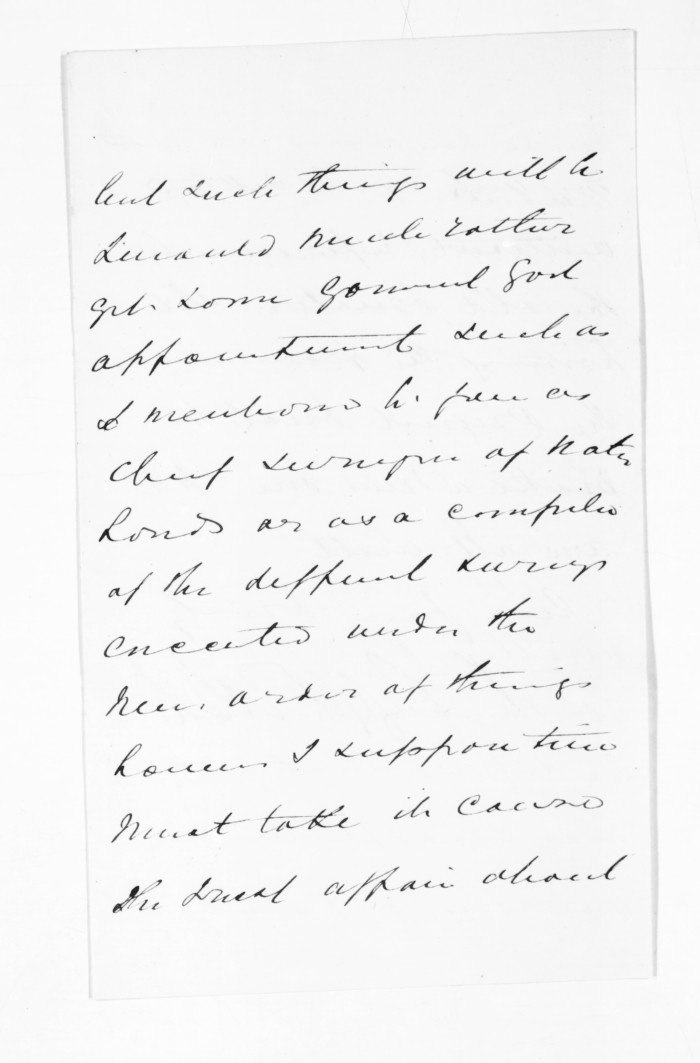 but such things will be
I would much rather
get some general Govt
appointment such as
I mentioned to you as
Chief Surveyor of Native
Lands or as a compiler
of the different surveys
executed under the
new order of things
however I suppose time
must take its course
The Trust affair about